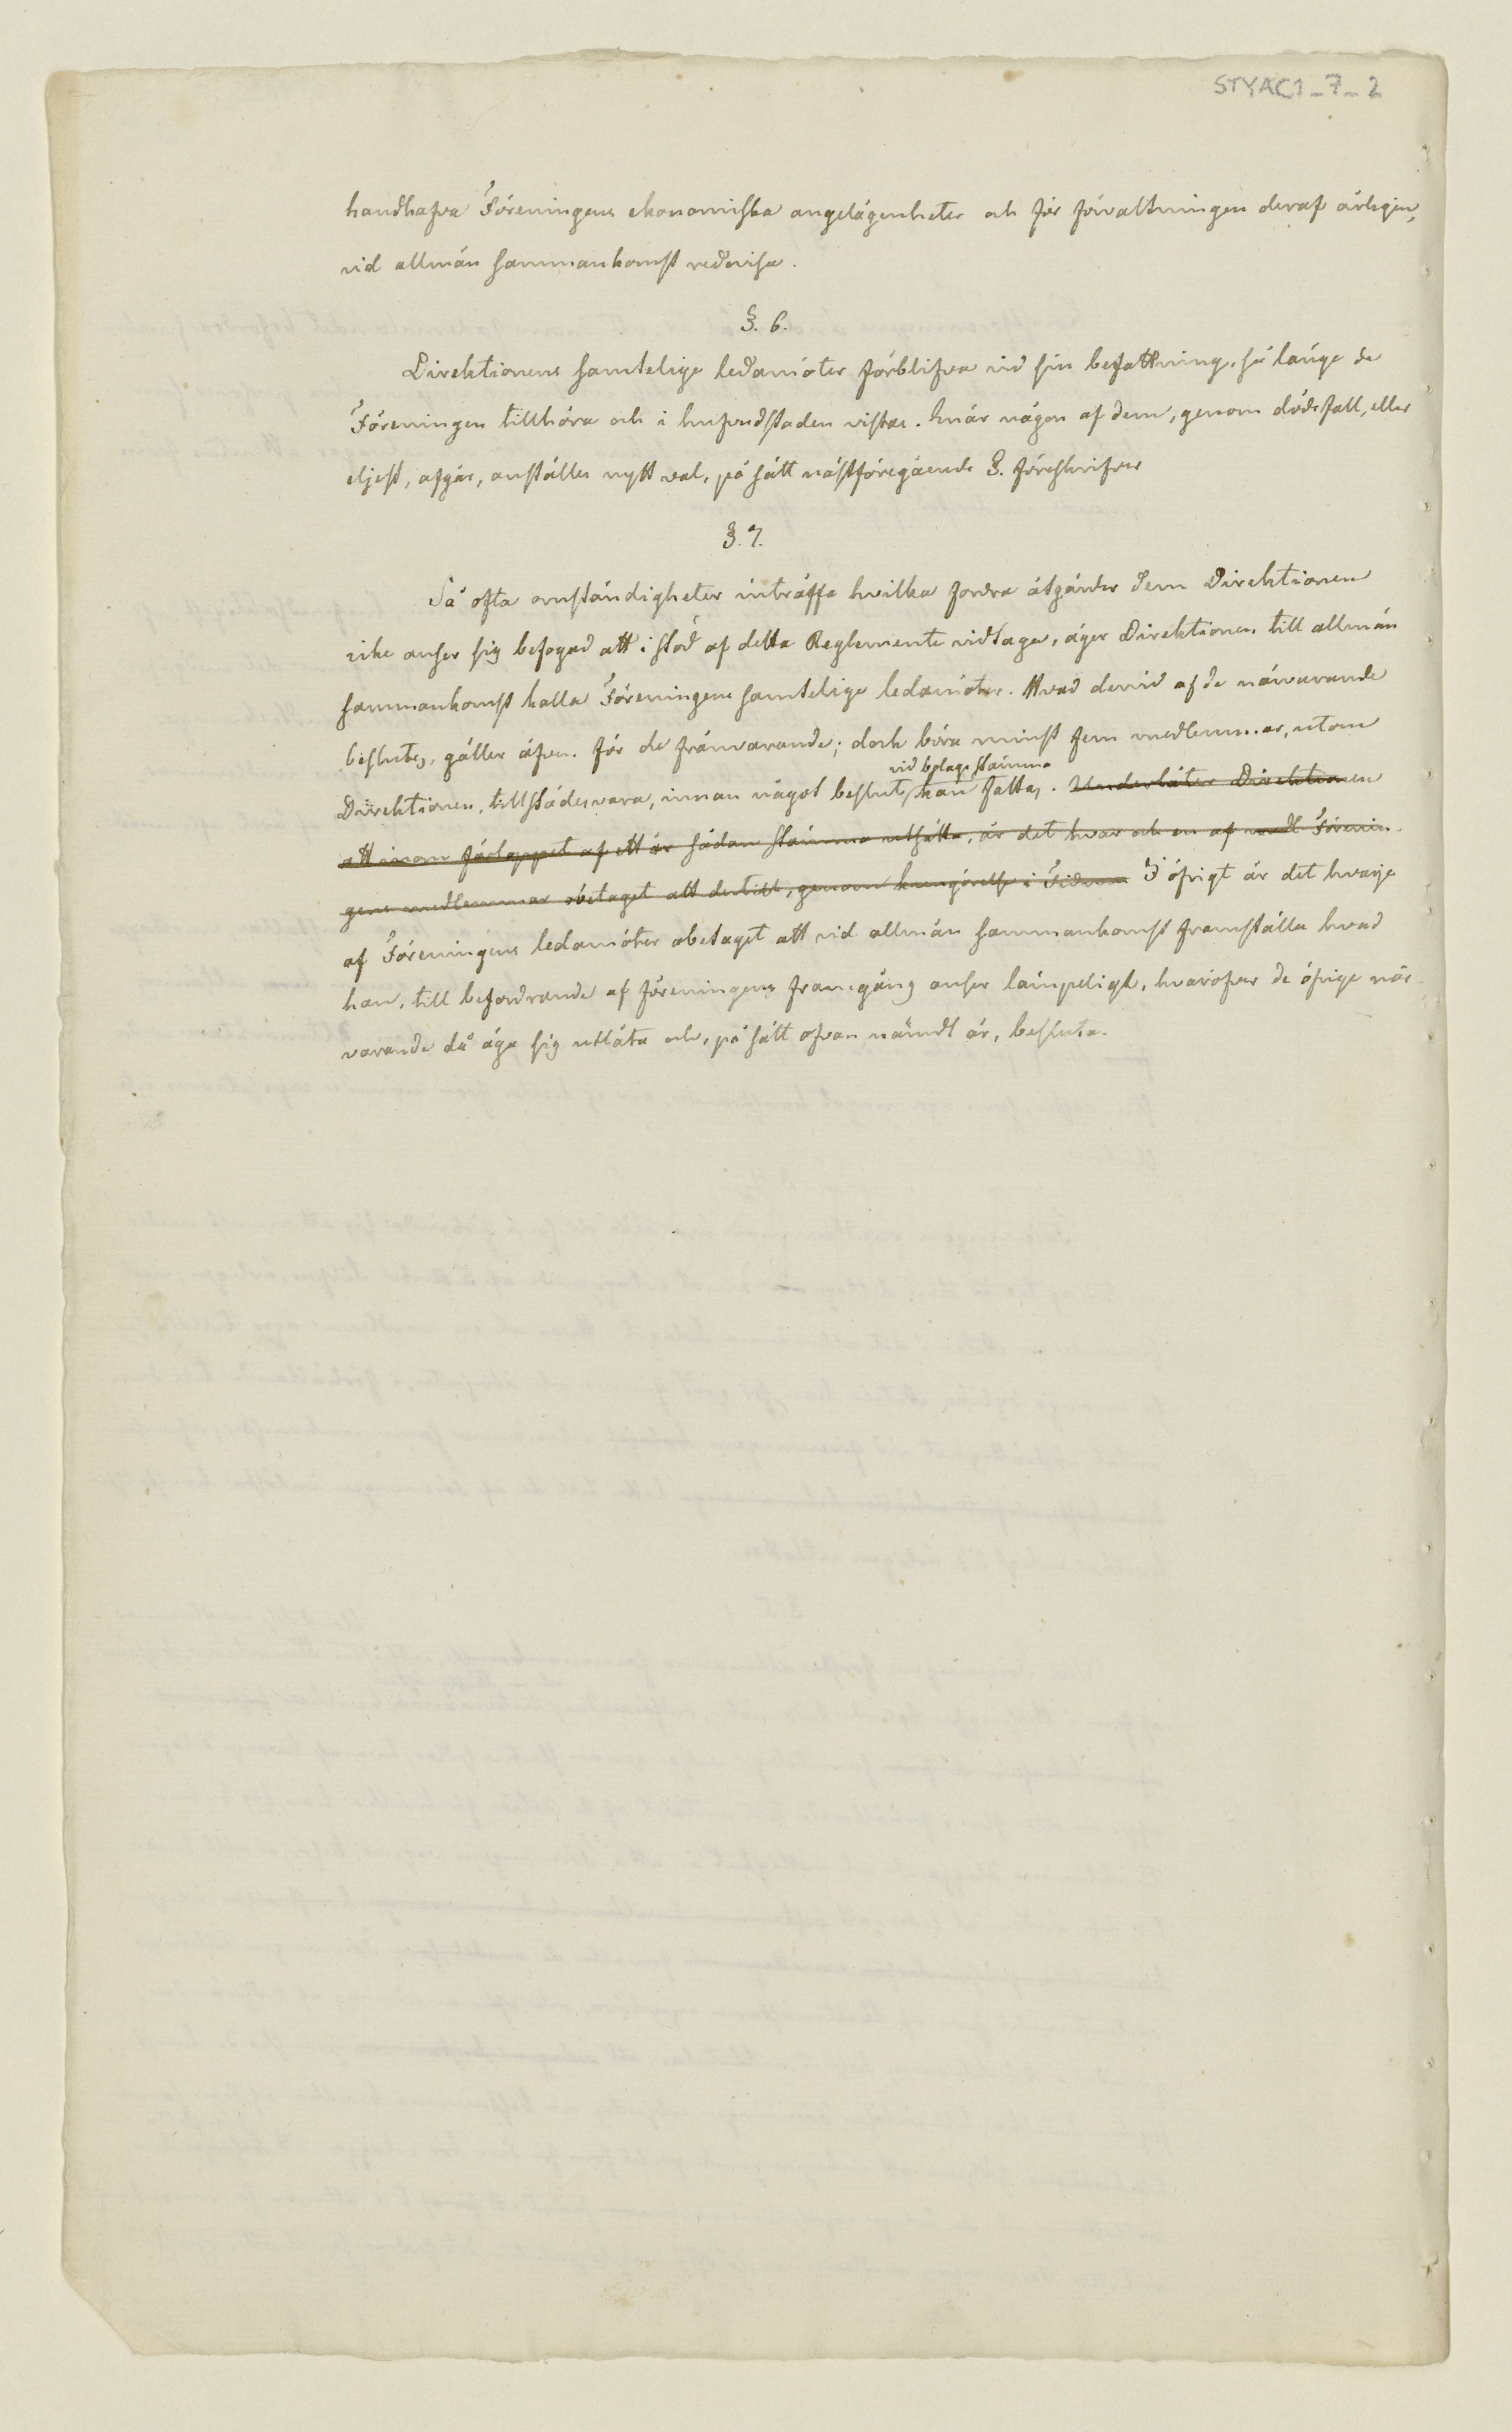 STYAC1_7_2
handhafva Föreningens ekonomiska angelägenheter och för förvaltningen deraf årligen,
vid allmän sammankomst redovisa.
§. 6.
Direktionens samtelige ledamöter förblifva vid sin befattning, så länge de
Föreningen tillhöra och i hufvudstaden vistas. När någon af dem, genom dödsfall, eller
eljest, afgår, anställes nytt val, på sätt nästföregående §. föreskrifver
§. 7.
Så ofta omständigheter inträffa hvilka fordra åtgärder dem Direktionen
icke anser sig befogad att i stöd af detta Reglemente vidtaga, äger Direktionen till allmän
sammankomst kalla Föreningens samtelige ledamöter. Hvad dervid af de närvarande
beslutes, gäller äfven för de frånvarande; dock böra minst fem medlemmar, utom
vid bolagsstämma
Direktionen, tillstädesvara, innan något beslut, kan fattas. Underlåter Direktionen
att inom förloppet af ett år sådan stämma utsätta, är det hvar och en af medl Förenin-
gens medlemmar obetaget att dertill, genom kungörelse i Tidnin I öfrigt är det hvarje
af Föreningens ledamöter obetaget att vid allmän sammankomst framställa hvad
han, till befordrande af föreningens framgång anser lämpeligt, hvaröfver de öfrige när-
varande då äga sig utlåta och, på sätt ofvan nämdt är, besluta.